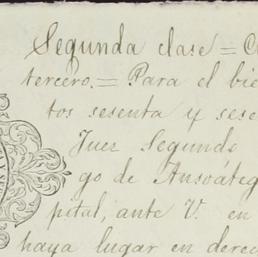 Segunda clase = C
tercero. = Para el bie
tos sesenta y sese
Juez Segundo
go de Ansoáteg
pital, ante V. en
haya lugar en derec